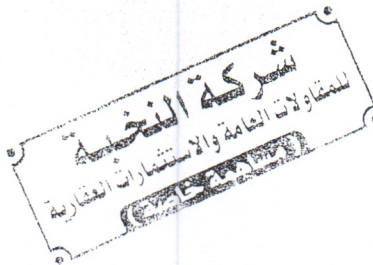 شركة النخلة
للمقاولات العامة والاستثمارات العقارية
(مساهمة خاصة)